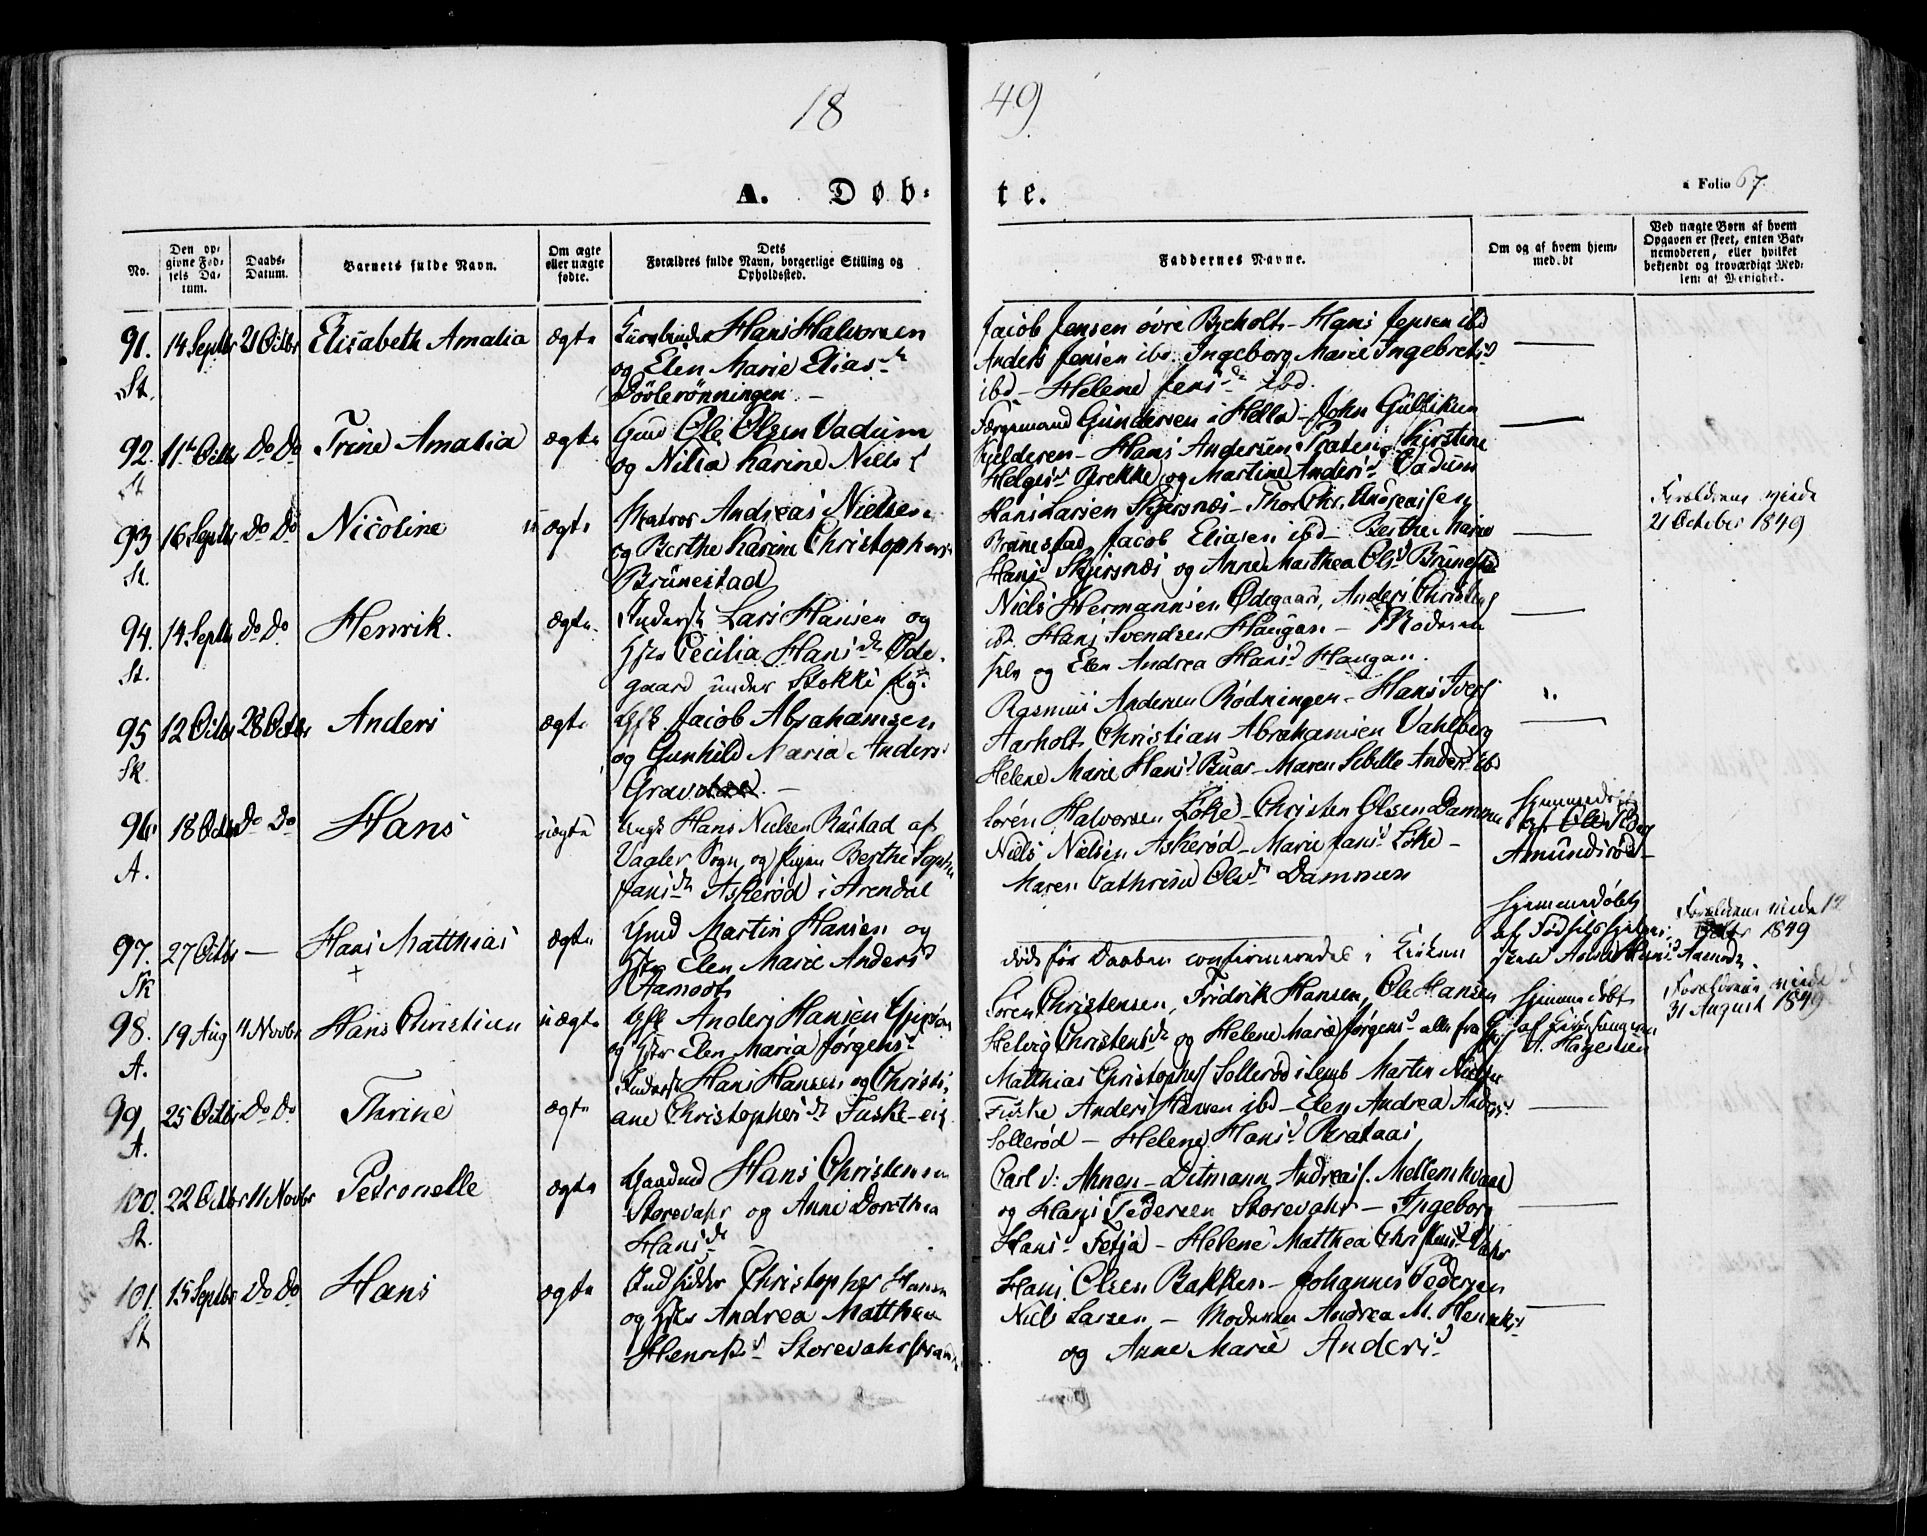 18 49
A. Døb- te.
Folio 67.
No.
Den op-
givne Fød-
sels Da-
tum.
Daabs-
Datum.
Barnets fulde Navn.
Om ægte
eller uægte
fødte.
Dets
Forældres fulde Navn, borgerlige Stilling og
Opholdssted.
Faddernes Navne.
Om og af hvem hjem-
med.bt
Ved uægte Børn af hvem
Opgaven er skeet, enten Bar-
nemoderen, eller hvilket
bekjendt og troværdigt Med-
lem af Menighed.
91. 14 Septbr 21 Octbr Elisabeth Amalia ægte Hans Halvorsen
St. og Elen Marie Elias
Dovlerønningen
Jacob Jensen øvre Bjeholt - Hans Jensen ibd
Anders Jensen ibd Ingeborg Marie Ingebrets
ibd - Helene Jens ibd.
92. 11te Octbr Do Do Trine Amalia ægte Gmd Ole Olsen Vadum
St og Nilia Karine Niels
Færgemand Gundersen i Hella - John
Kjelderen - Hans Andersen Kjrstine
Helges Brekke og Martine Anders Vadum
93 16 Septbr Do Do Nicoline ægte Matros Andreas Nielsen
St. og Berthe Karine Christophers
Brunestad
Hans Larsen Skjersnæs - Thor Chr. Andreassen
Brunestad, Jacob Eliasen ibd - Berthe Marie
Hans Skjersnæs og Anne Marthea Ols Brunestad
Forældrene viede
21 October 1849
94. 14 Septbr Do Do Henrik. ægte. Inderst Lars Hansen og
St. Cecilia Hans Øde-
gaard under Stokke
Niels Hermannsen Ødegaard, Anders Christens
ibd. Hans Svendsen Haugan - Moderen
selv og Elen Andrea Hans Haugan.
95 12 Octbr 28 Octbr Anders ægte Jacob Abrahamsen
Sk. og Gunhild Maria Anders
Rasmus Andersen Rødningen - Hans Ivers
Aarholt Christian Abrahamsen Vahlberg
Helene Marie Hans Buar - Maren Sibille Anders ibd
96 18 Octbr Do Do Hans uægte Ungk Hans Nielsen Rustad af
A. Vagler Sogn, og Pigen Berthe Sophie
Jans Askerød i Arendal
Søren Halvorsen Løke - Christen Olsen Dammen
Niels Nielsen Askerød - Marie Jans Løke -
Maren Cathrine Ols Dammen
Hjemmedøbt
af Ole
Amundsrød
97. 27 Octbr — Hans Matthias ægte Gmd Martin Hansen og
Sk + Elen Marie Anders
Aamodt
døde før Daaben confirmeredes i Kirken
Hjemmedøbt
Forældrene viede 12
1849
98. 19 Aug 4 Novbr Hans Christian uægte Anders Hansen
A. og Elen Maria Jørgens
Søren Christensen, Fridrik Hansen, Ole Hansen
Helvig Christens og Helene Marie Jørgens alle fra
Hjemmedøbt
Forældrene viede
31 August 1849
99 25 Octbr Do Do Thrine ægte Inderst Hans Hansen og Christi-
A. ane Christophers Fuske-eie
Matthias Christophers Sollerød i Lemb Martin
Fuske Anders Hansen ibd - Elen Andrea Anders
Sollerød - Helene Hans Brataas
100. 22 Octbr 11 Novbr Petronelle ægte Gaardmd Hans Christensen
St. Storevahr og Anne Dorothea
Hans
Carl v: Ahnen - Ditmann Andreas Mellemhvaal
og Hans Pedersen Storevahr - Ingeborg
Hans Fetja - Helene Matthea Christens Vahr
101. 15 Septbr Do Do Hans ægte Indsidder Christopher Hansen
St og Andrea Matthea
Henriks Storevahr
Hans Olsen Bakken - Johannes Pedersen
Niels Larsen - Moderen Andrea M. Henriks
og Anne Marie Anders